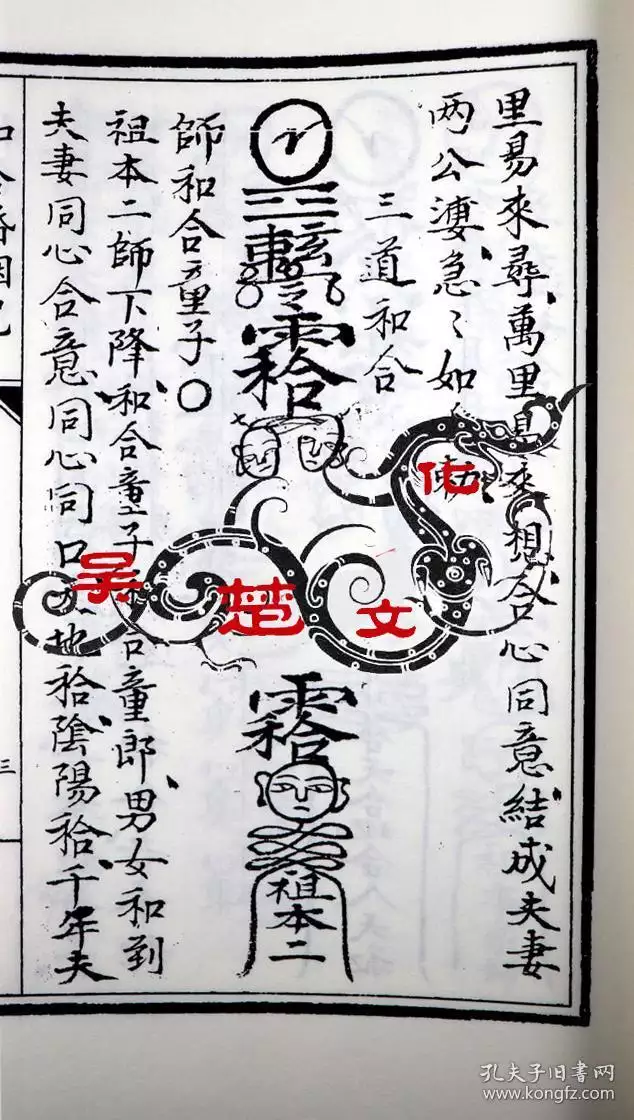 里易來尋萬里易來想合心同意結成夫妻
两公凄急〻如
三道和合
祖本二
師和合童子〇
祖本二師下降和合童子和合童郎男女和到
夫妻同心合意同心同口地秴陰陽秴千年夫
吴楚文化
三
孔夫子旧書网
www.kongfz.com